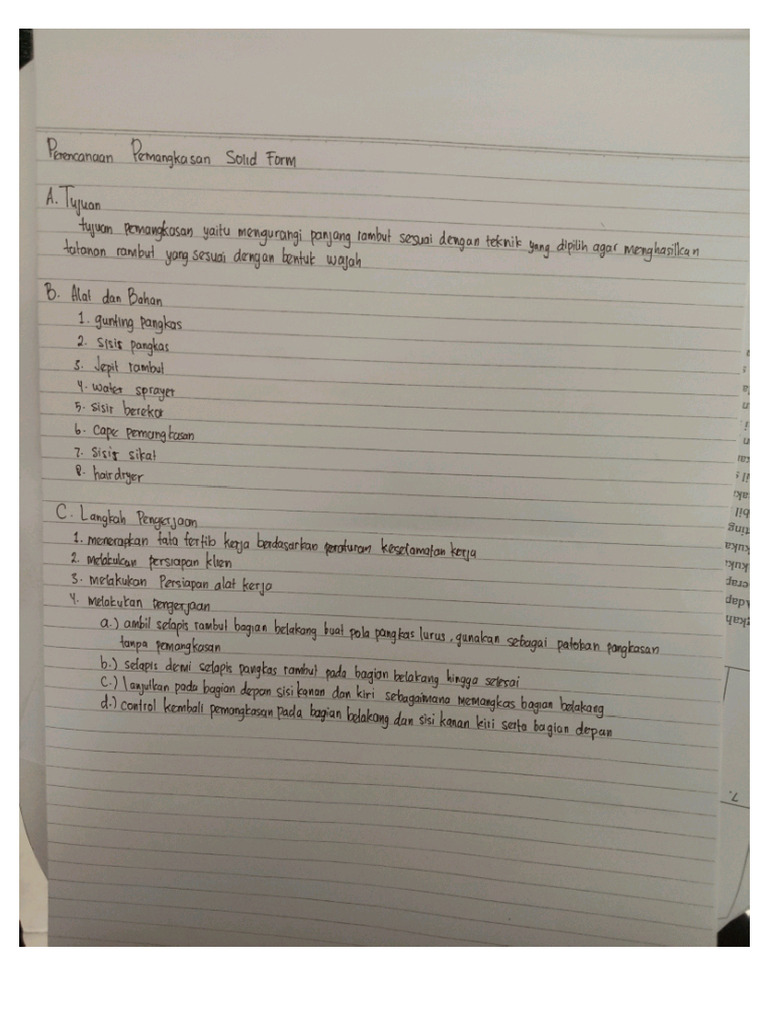 Perencanaan Pemangkasan Solid Form
A. Tujuan
tujuan pemangkasan yaitu mengurangi panjang rambut sesuai dengan teknik yang dipilih agar menghasilkan
tatanan rambut yang sesuai dengan bentuk wajah
B. Alat dan Bahan
1. gunting pangkas
2. Sisir pangkas
3. Jepit rambut
4. water sprayer
5. sisir berekor
6. Cape pemangkasan
7. Sisir sikat
8. hairdryer
C. Langkah Pengerjaan
1. menerapkan tata tertib kerja berdasarkan peraturan keselamatan kerja
2. melakukan persiapan klien
3. melakukan Persiapan alat kerja
4. melakukan pengerjaan
a.) ambil selapis rambut bagian belakang buat pola pangkas lurus, gunakan sebagai patokan pangkasan
tanpa pemangkasan
b.) selapis demi selapis pangkas rambut pada bagian belakang hingga selesai
c.) lanjutkan pada bagian depan sisi kanan dan kiri sebagaimana memangkas bagian belakang
d.) control kembali pemangkasan pada bagian belakang dan sisi kanan kiri serta bagian depan
7.